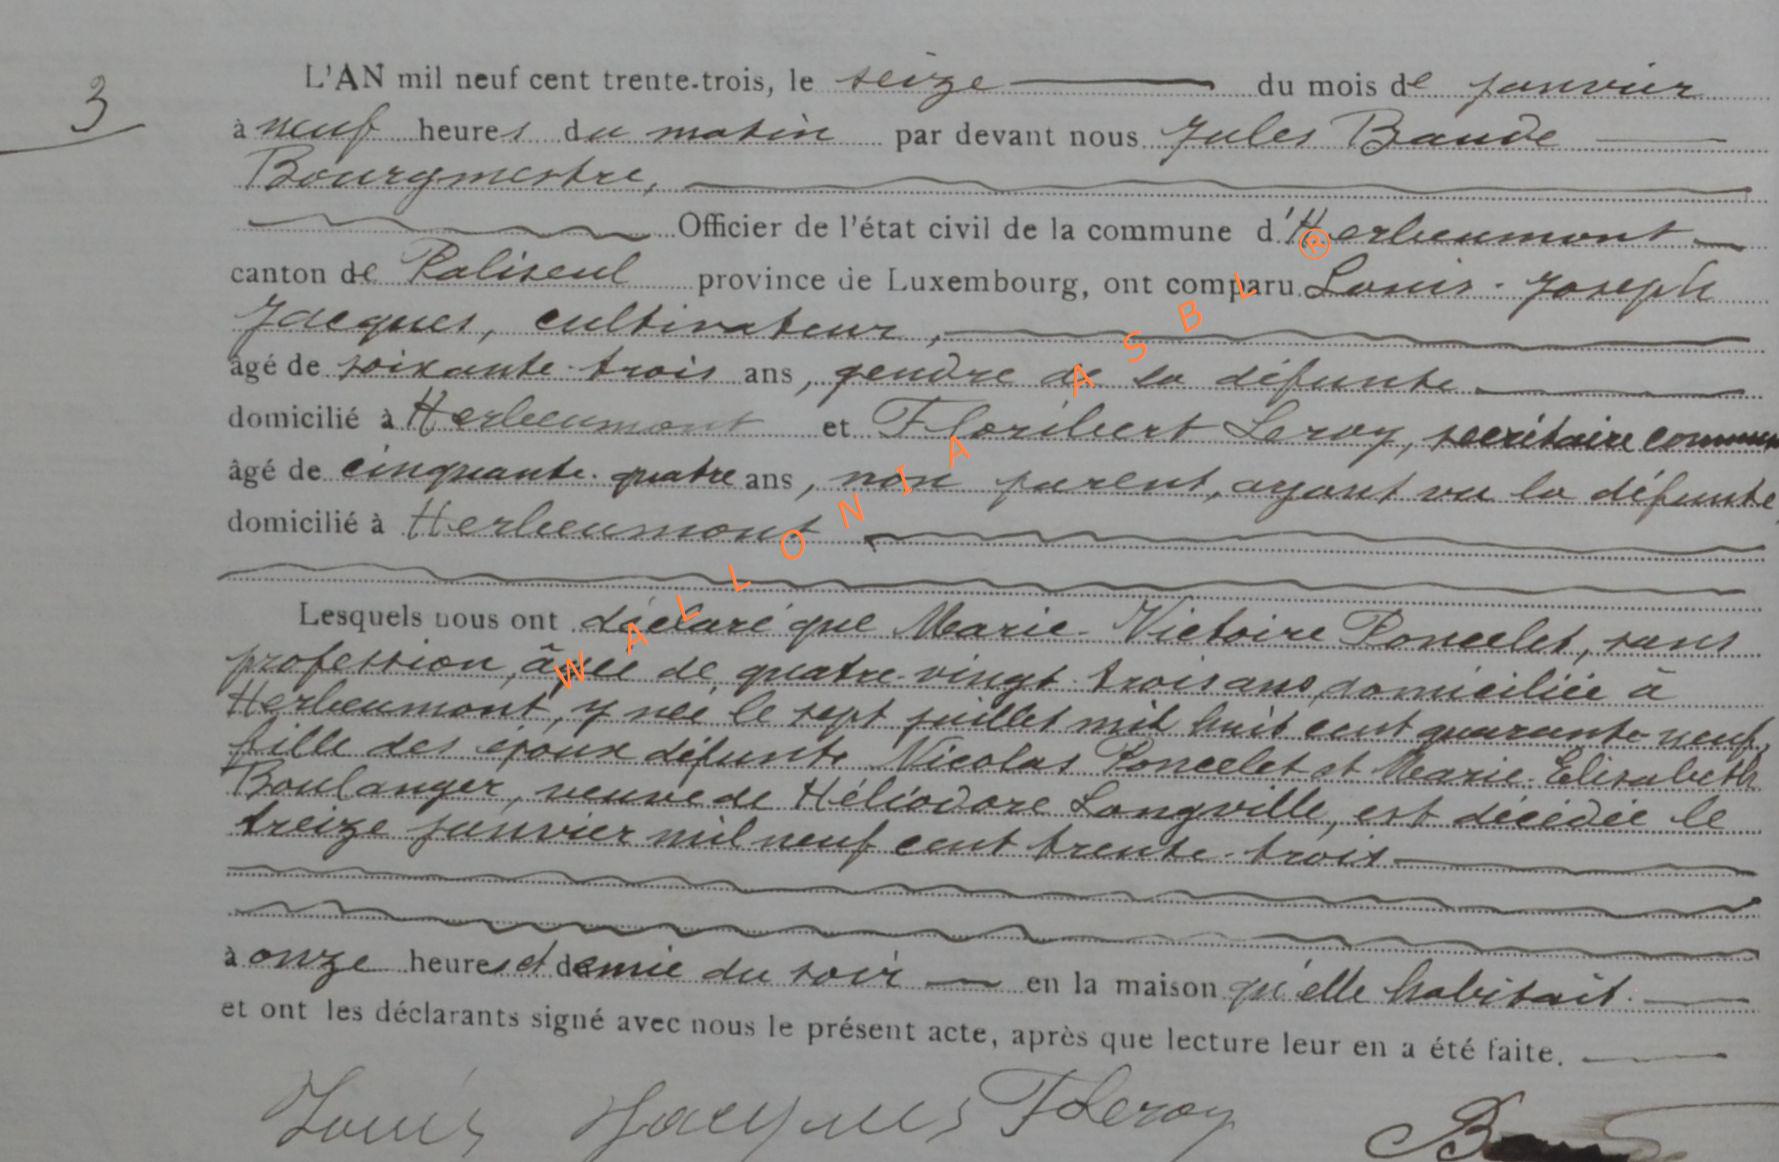 3
L'AN mil neuf cent trente-trois, le seize du mois de janvier
à neuf heures du matin par devant nous Jules Baude
Bourgmestre,
Officier de l'état civil de la commune d'Herbeumont
canton de Paliseul province de Luxembourg, ont comparu Louis-Joseph
Jacques, cultivateur,
âgé de soixante-trois ans, gendre de la défunte
domicilié à Herbeumont et Floribert Leroy, secrétaire commun
âgé de cinquante-quatre ans, non parent, ayant vu la défunte,
domicilié à Herbeumont
Lesquels nous ont déclaré que Marie-Victoire Poncelet, sans
profession, âgée de quatre-vingt-trois ans, domiciliée à
Herbeumont, y née le sept juillet mil huit cent quarante-neuf,
fille des époux défunts Nicolas Poncelet et Marie-Elisabeth
Boulanger, veuve de Héliodore Longville, est décédée le
treize janvier mil neuf cent trente-trois
à onze heures et demie du soir en la maison qu'elle habitait.
et ont les déclarants signé avec nous le présent acte, après que lecture leur en a été faite.
Louis Jacques FLeroy
WALLONIA ASBL ®